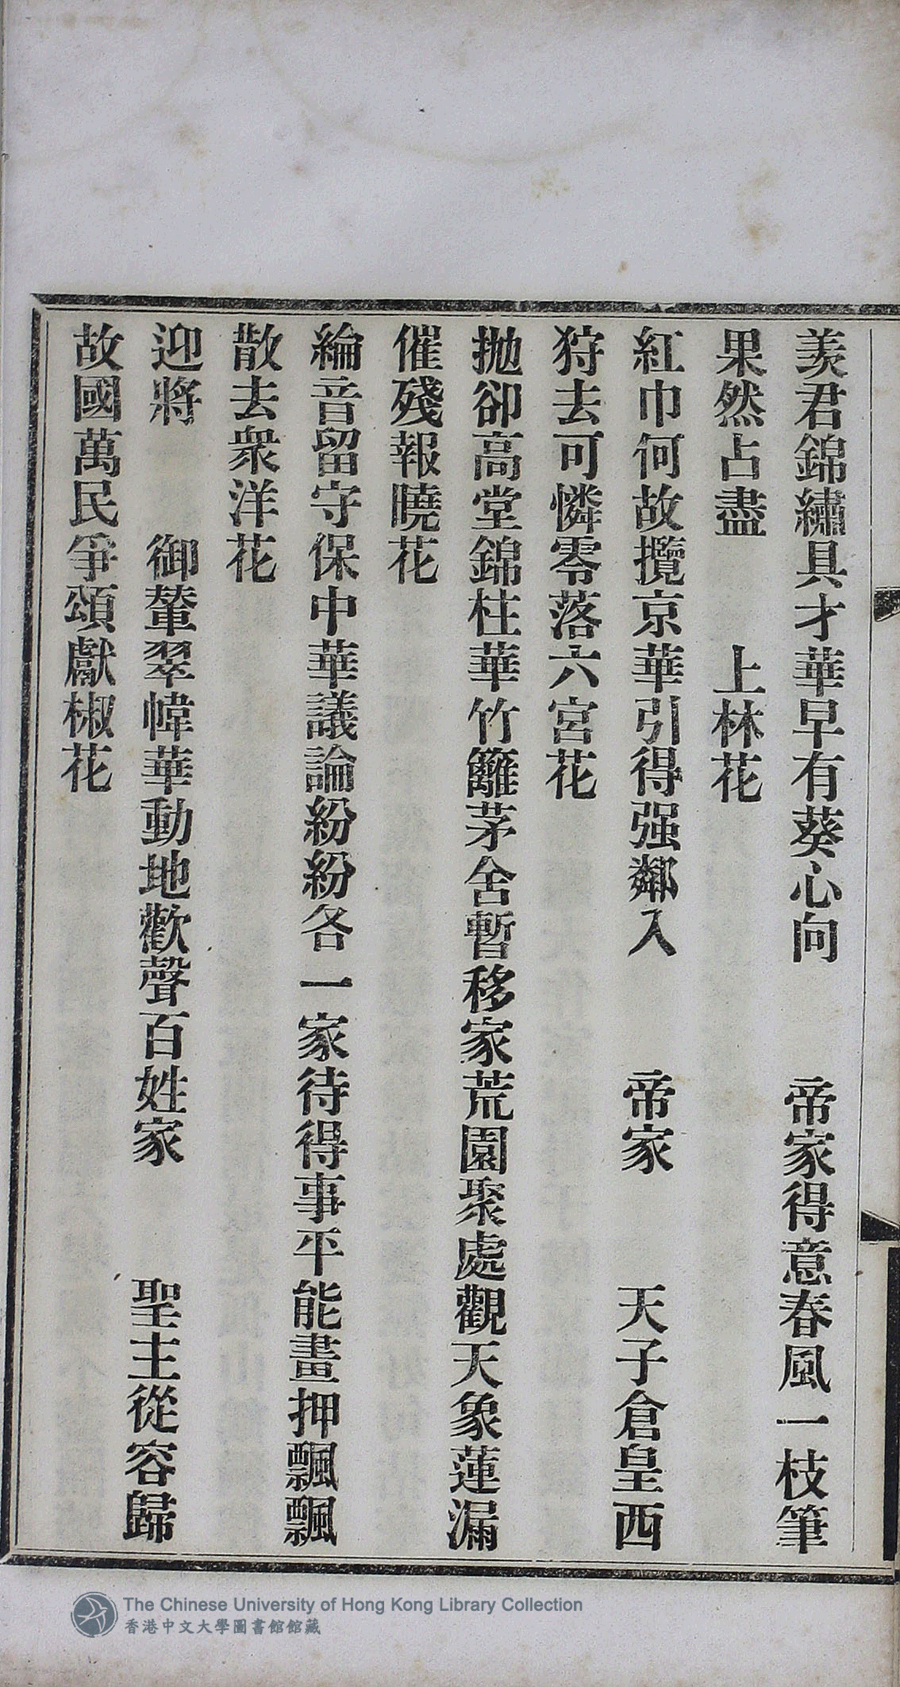 羨君錦繡具才華早有葵心向　帝家得意春風一枝筆
果然占盡　上林花
紅巾何故攬京華引得强鄰入　帝家　天子倉皇西
狩去可憐零落六宮花
拋卻高堂錦柱華竹籬茅舍暫移家荒園聚處觀天象蓮漏
催殘報曉花
綸音留守保中華議論紛紛各一家待得事平能畫押飄飄
散去衆洋花
迎將　御輦翠幃華動地歡聲百姓家　聖主從容歸
故國萬民爭頌獻椒花
The Chinese University of Hong Kong Library Collection
香港中文大學圖書館館藏